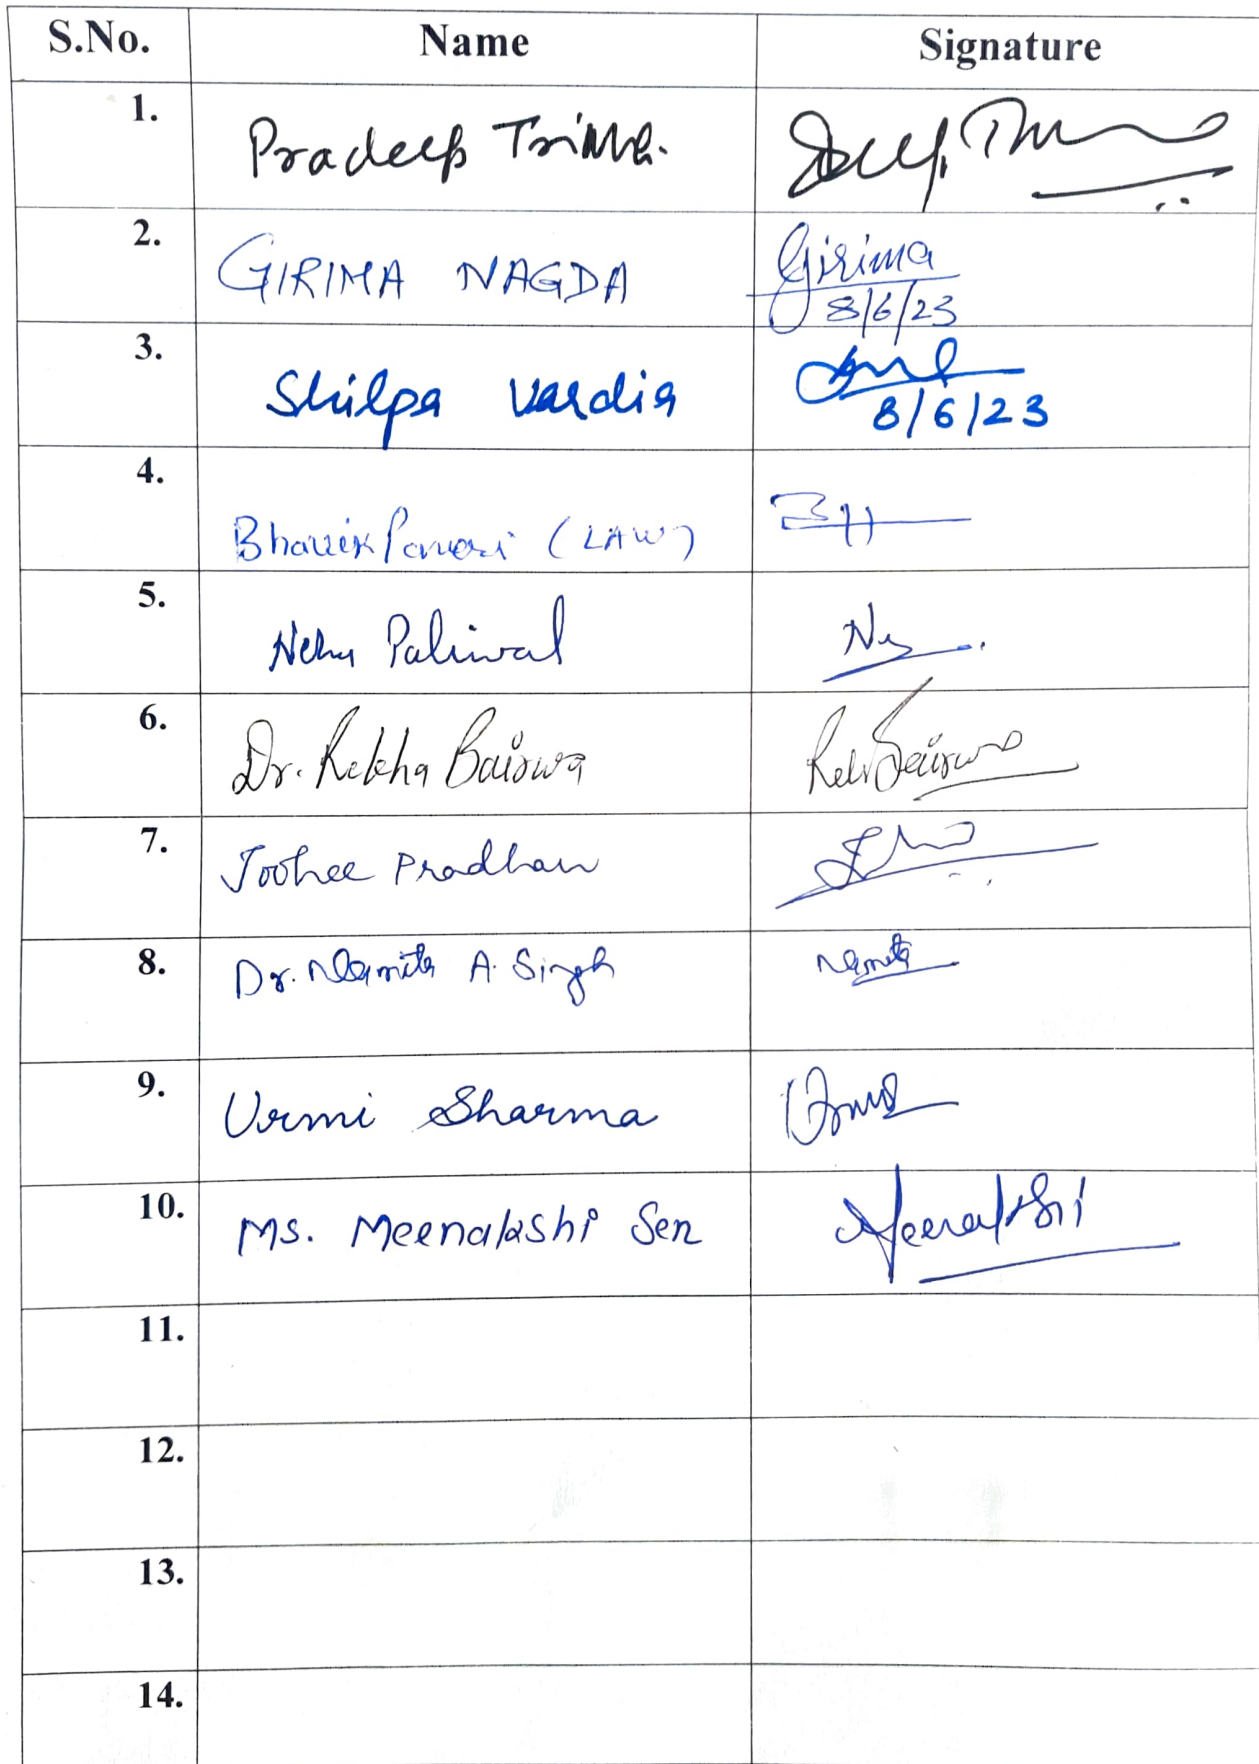 S.No. Name Signature
1. Pradeep
2. GIRIMA NAGDA Girima
8/6/23
3. Shilpa Vardia
8/6/23
4. Bhavik Paneri (LAW)
5. Neha Paliwal
6. Dr. Rekha Bairwa
7. Joohee Pradhan
8. Dr. Namita A. Singh Namita
9. Urmi Sharma
10. Ms. Meenakshi Sen Meenakshi
11.
12.
13.
14.